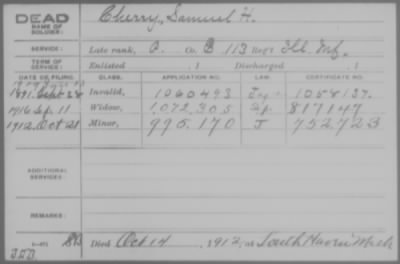 DEAD
NAME OF SOLDIER: Cherry, Samuel H.
SERVICE: Late rank, P. Co. C 113 Reg't Ill. Inf.
TERM OF SERVICE: Enlisted , 1 Discharged , 1
DATE OF FILING. CLASS. APPLICATION NO. LAW. CERTIFICATE NO.
1891. Sept 28 Invalid, 1060493 1058137.
1916 Sep. 11 Widow, 1,072,305 817147
1912 Oct 21 Minor, 995,170 J 752,723
ADDITIONAL SERVICES:
REMARKS:
Died Oct 14, 1912, at South Haven Mich